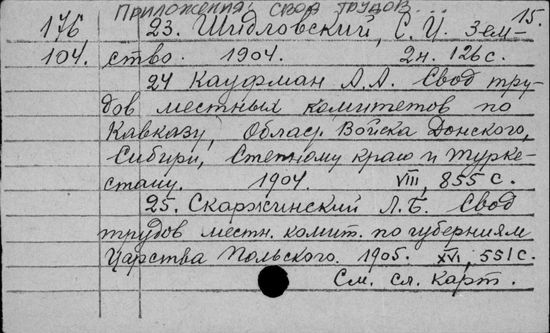 Приложения, свод трудов... 15.
176, 23. Шидловский, С. И. Зем-
104. ство. 1904. 2н. 126 с.
24 Кауфман А. А. Свод тру-
дов местных комитетов по
Кавказу, Облас. Войска Донского,
Сибири, Степному краю и Турке-
стану. 1904. VIII, 855 с.
25. Скаржинский Л. Б. Свод
трудов местн. комит. по губерниям
Царства Польского. 1905. XVI, 551 с.
См. сл. карт.